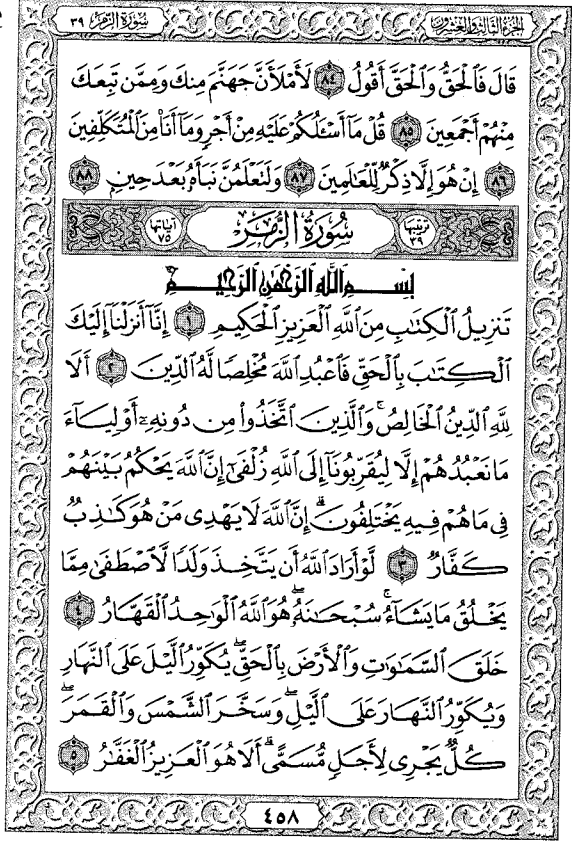 الجزء الثالث والعشرون سورة الزمر ٣٩
قَالَ فَٱلْحَقُّ وَٱلْحَقَّ أَقُولُ ٨٤ لَأَمْلَأَنَّ جَهَنَّمَ مِنكَ وَمِمَّن تَبِعَكَ
مِنْهُمْ أَجْمَعِينَ ٨٥ قُلْ مَآ أَسْـَٔلُكُمْ عَلَيْهِ مِنْ أَجْرٍ وَمَآ أَنَا۠ مِنَ ٱلْمُتَكَلِّفِينَ
٨٦ إِنْ هُوَ إِلَّا ذِكْرٌ لِّلْعَـٰلَمِينَ ٨٧ وَلَتَعْلَمُنَّ نَبَأَهُۥ بَعْدَ حِينٍۭ ٨٨
ترتيبها ٣٩ سُورَةُ الزُّمَرِ آياتها ٧٥
بِسْمِ ٱللَّهِ ٱلرَّحْمَـٰنِ ٱلرَّحِيمِ
تَنزِيلُ ٱلْكِتَـٰبِ مِنَ ٱللَّهِ ٱلْعَزِيزِ ٱلْحَكِيمِ ١ إِنَّآ أَنزَلْنَآ إِلَيْكَ
ٱلْكِتَـٰبَ بِٱلْحَقِّ فَٱعْبُدِ ٱللَّهَ مُخْلِصًا لَّهُ ٱلدِّينَ ٢ أَلَا
لِلَّهِ ٱلدِّينُ ٱلْخَالِصُ ۚ وَٱلَّذِينَ ٱتَّخَذُوا۟ مِن دُونِهِۦٓ أَوْلِيَآءَ
مَا نَعْبُدُهُمْ إِلَّا لِيُقَرِّبُونَآ إِلَى ٱللَّهِ زُلْفَىٰٓ إِنَّ ٱللَّهَ يَحْكُمُ بَيْنَهُمْ
فِى مَا هُمْ فِيهِ يَخْتَلِفُونَ ۗ إِنَّ ٱللَّهَ لَا يَهْدِى مَنْ هُوَ كَـٰذِبٌ
كَفَّارٌ ٣ لَّوْ أَرَادَ ٱللَّهُ أَن يَتَّخِذَ وَلَدًا لَّٱصْطَفَىٰ مِمَّا
يَخْلُقُ مَا يَشَآءُ ۚ سُبْحَـٰنَهُۥ ۖ هُوَ ٱللَّهُ ٱلْوَٰحِدُ ٱلْقَهَّارُ ٤
خَلَقَ ٱلسَّمَـٰوَٰتِ وَٱلْأَرْضَ بِٱلْحَقِّ ۖ يُكَوِّرُ ٱلَّيْلَ عَلَى ٱلنَّهَارِ
وَيُكَوِّرُ ٱلنَّهَارَ عَلَى ٱلَّيْلِ ۖ وَسَخَّرَ ٱلشَّمْسَ وَٱلْقَمَرَ ۖ
كُلٌّ يَجْرِى لِأَجَلٍ مُّسَمًّى ۗ أَلَا هُوَ ٱلْعَزِيزُ ٱلْغَفَّـٰرُ ٥
٤٥٨